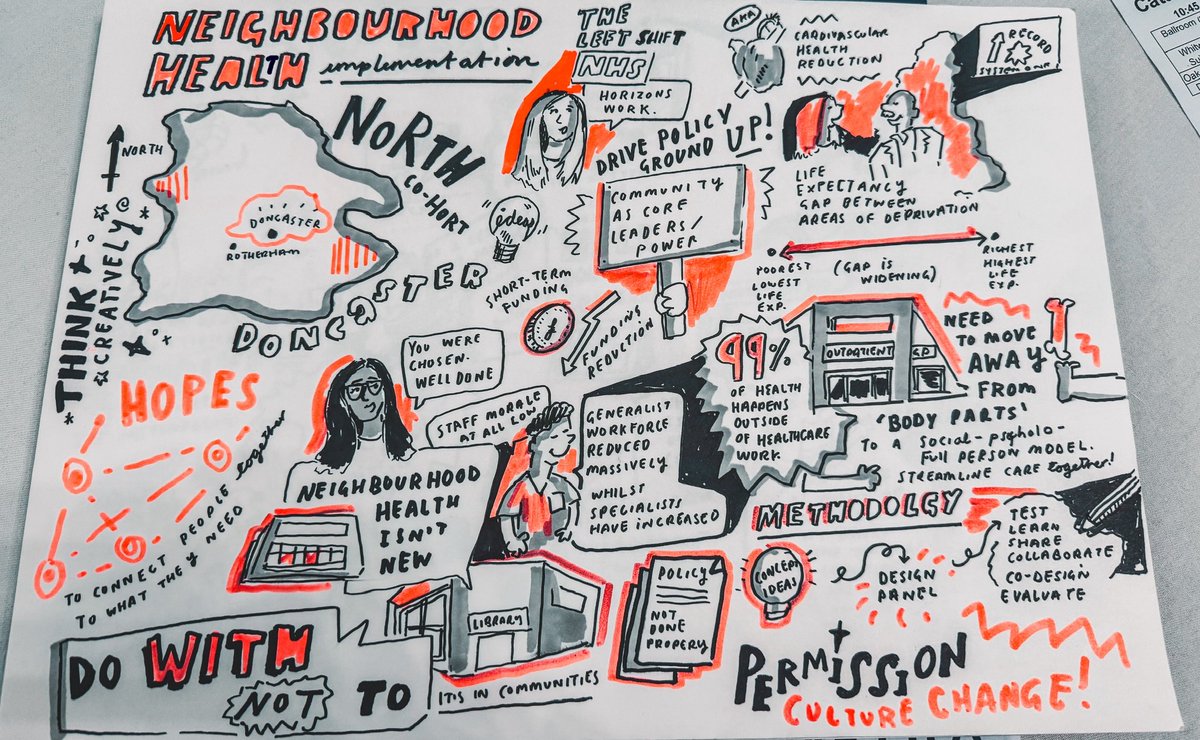 NEIGHBOURHOOD
HEALTH implementation
THE
LEFT SHIFT
NHS
HORIZONS
WORK.
AKA
CARDIVASCULAR
HEALTH
REDUCTION
RECORD
SYSTEM ONE
10:45
Ballroom
NORTH
NORTH
CO-HORT
DONCASTER
ROTHERHAM
DONCASTER
THINK
CREATIVELY
ideas
DRIVE POLICY
GROUND UP!
COMMUNITY
AS CORE
LEADERS/
POWER
LIFE
EXPECTANCY
GAP BETWEEN
AREAS OF DEPRIVATION
POOREST
LOWEST
LIFE
EXP.
(GAP IS
WIDENING)
RICHEST
HIGHEST
LIFE
EXP.
SHORT-TERM
FUNDING
FUNDING
REDUCTION
YOU WERE
CHOSEN-
WELL DONE
STAFF MORALE
AT ALL LOW
NEIGHBOURHOOD
HEALTH
ISN'T
NEW
GENERALIST
WORKFORCE
REDUCED
MASSIVELY
WHILST
SPECIALISTS
HAVE INCREASED
99%
OF HEALTH
HAPPENS
OUTSIDE
OF HEALTHCARE
WORK.
OUTPATIENT
GP
NEED
TO MOVE
AWAY
FROM
'BODY PARTS'
TO A SOCIAL-PSYHOLO-
FULL PERSON MODEL.
STREAMLINE CARE together!
HOPES
TO CONNECT PEOPLE together
TO WHAT THEY NEED
DO WITH
NOT TO
LIBRARY
IT IS IN COMMUNITIES
POLICY
NOT
DONE
PROPERY
METHODOLGY
CONCEPT
IDEAS
DESIGN
PANEL
TEST
LEARN
SHARE
COLLABORATE
CO-DESIGN
EVALUATE
PERMISSION
CULTURE CHANGE!